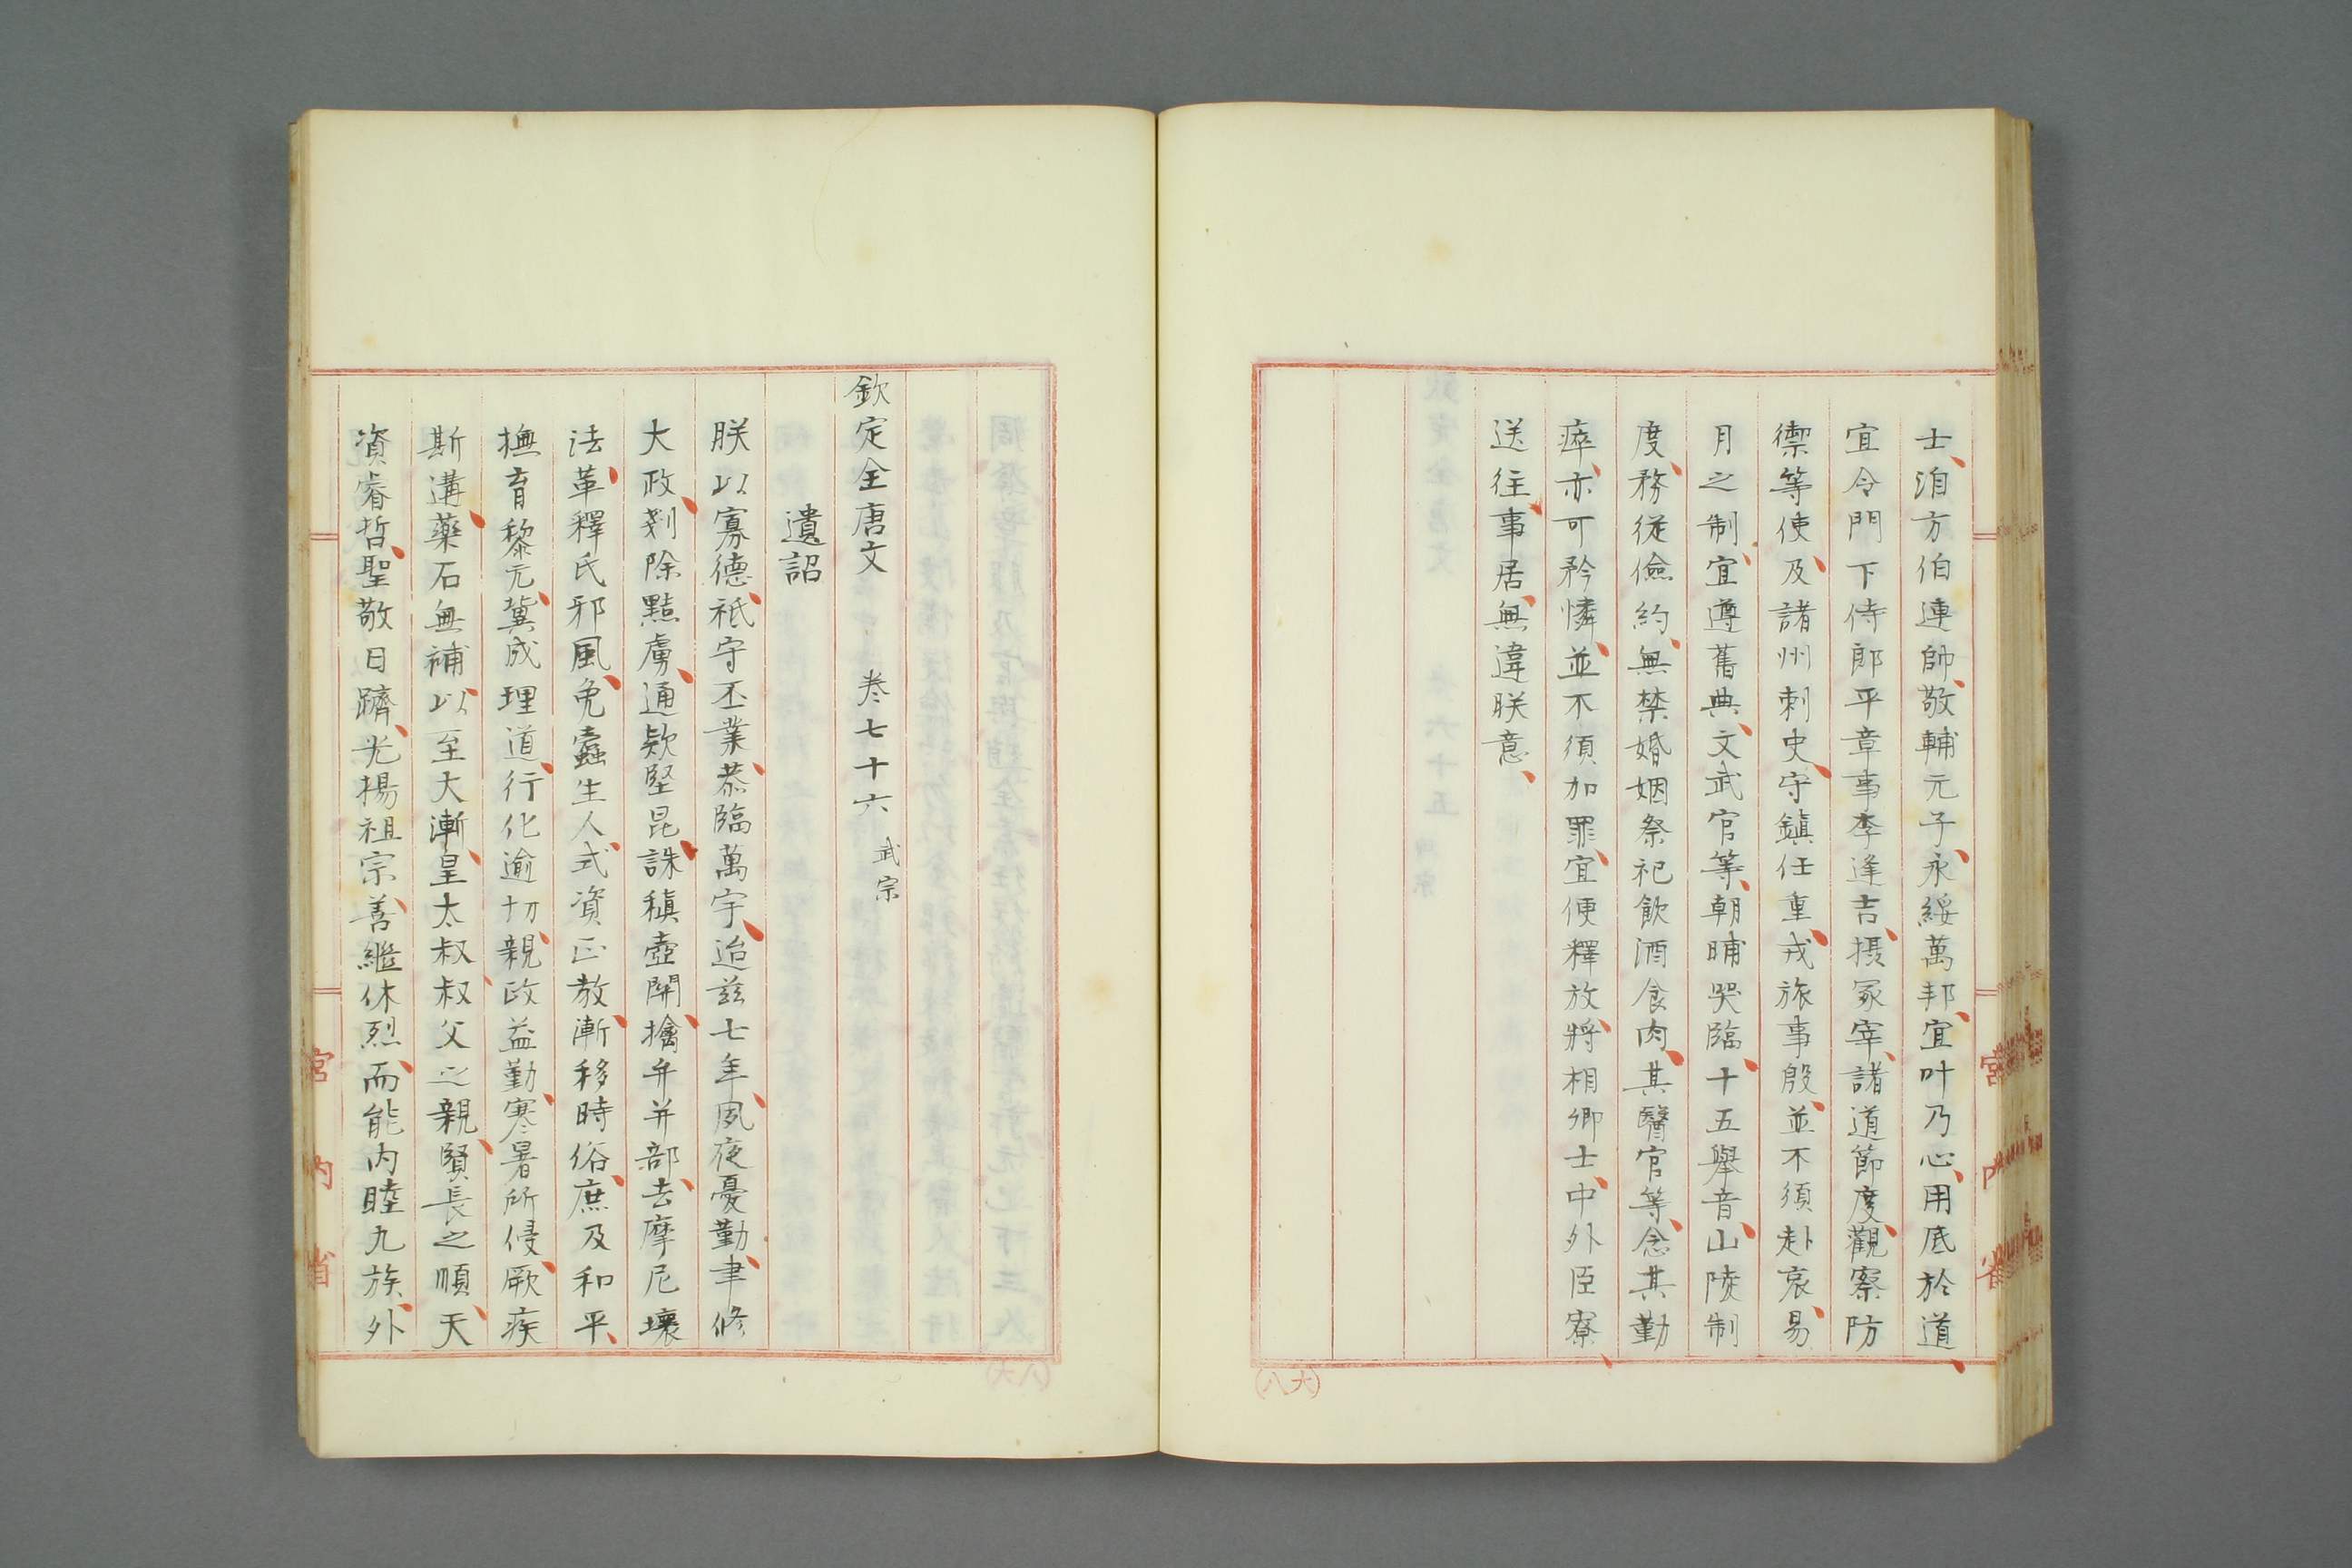 士洎方伯連帥敬輔元子永綏萬邦宜叶乃心用底於道
宜令門下侍郎平章事李逢吉摄冢宰諸道節度觀察防
禦等使及諸州刺史守鎮任重戎旅事殷並不須赴哀易
月之制宜遵舊典文武官等朝晡哭臨十五舉音山陵制
度務從儉約無禁婚姻祭祀飲酒食肉其醫官等念其勤
瘁亦可矜憐並不須加罪宜便釋放將相卿士中外臣寮
送往事居無違朕意
(八六)
宮内省
欽定全唐文 卷七十六 武宗
遺詔
朕以寡德祗守丕業恭臨萬宇迨兹七年夙夜憂勤聿修
大政剗除黠虜通欵堅昆誅稹壺關擒弁并部去摩尼壞
法革釋氏邪風免蠹生人式資正教漸移時俗庶及和平
撫育黎元冀成理道行化逾切親政益勤寒暑所侵厥疾
斯遘藥石無補以至大漸皇太叔叔父之親賢長之順天
資睿哲聖敬日躋光揚祖宗善繼休烈而能内睦九族外
宮内省